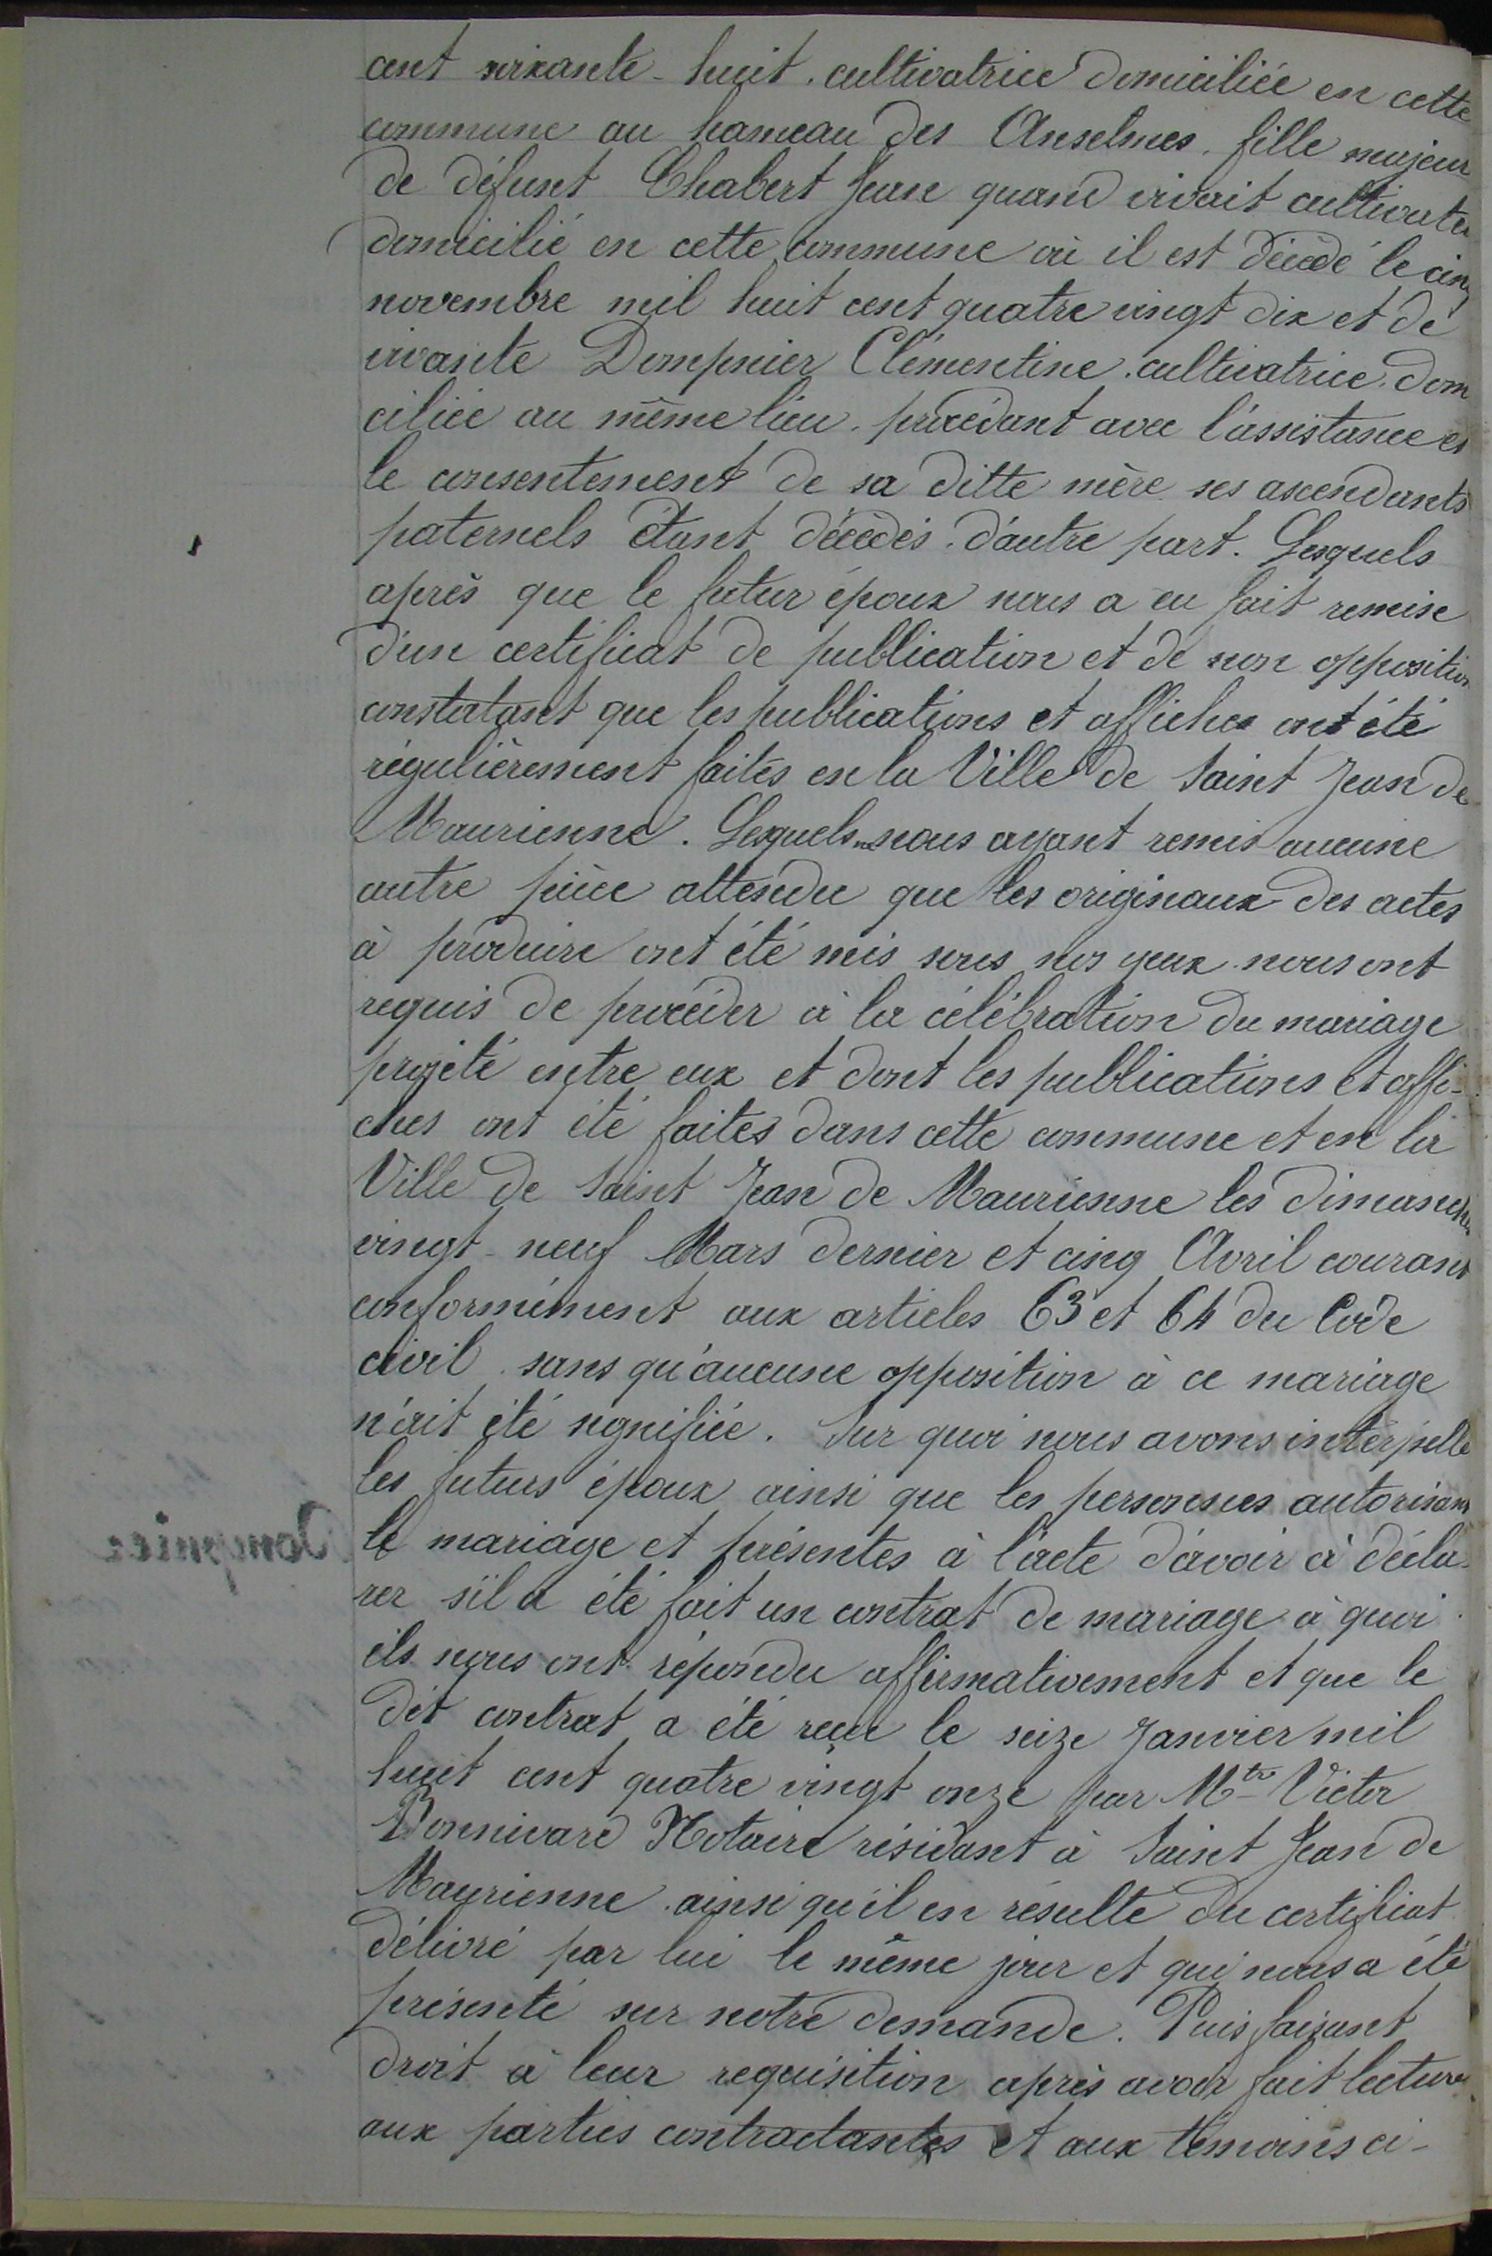 cent soixante-huit. cultivatrice domiciliée en cette
commune au hameau des Anselmes. fille majeur
de défunt Chabert Jean quand vivait cultivate
domicilié en cette commune où il est décédé le cinq
novembre mil huit cent quatre vingt dix et de
vivante Dompnier Clémentine. cultivatrice. domi
ciliée au même lieu. procédant avec l'assistance et
le consentement de sa ditte mère ses ascendants
paternels étant décédés. d'autre part. Lesquels
après que le futur époux nous a eu fait remise
d'un certificat de publication et de non opposition
constatant que les publications et affiches ont été
régulièrement faites en la Ville de Saint Jean de
Maurienne. Lesquels ne nous ayant remis aucune
autre pièce attendu que les originaux des actes
à produire ont été mis sous nos yeux nous ont
requis de procéder à la célébration du mariage
projeté entre eux et dont les publications et affi-
ches ont été faites dans cette commune et en la
Ville de Saint Jean de Maurienne les dimanches
vingt-neuf Mars dernier et cinq Avril courant
conformément aux articles 63 et 64 du Code
civil sans qu'aucune opposition à ce mariage
n'ait été signifiée. Sur quoi nous avons interpellé
les futurs époux ainsi que les personnes autorisant
le mariage et présentes à l'acte d'avoir à décla-
rer s'il a été fait un contrat de mariage à quoi
ils nous ont répondu affirmativement et que le
dit contrat a été reçu le seize Janvier mil
huit cent quatre vingt onze par Mtre Victor
Bonnivard Notaire résidant à Saint Jean de
Maurienne. ainsi qu'il en résulte du certificat
délivré par lui le même jour et qui nous a été
présenté sur notre demande. Puis faisant
droit à leur requisition après avoir fait lecture
aux parties contractantes et aux témoins ci-